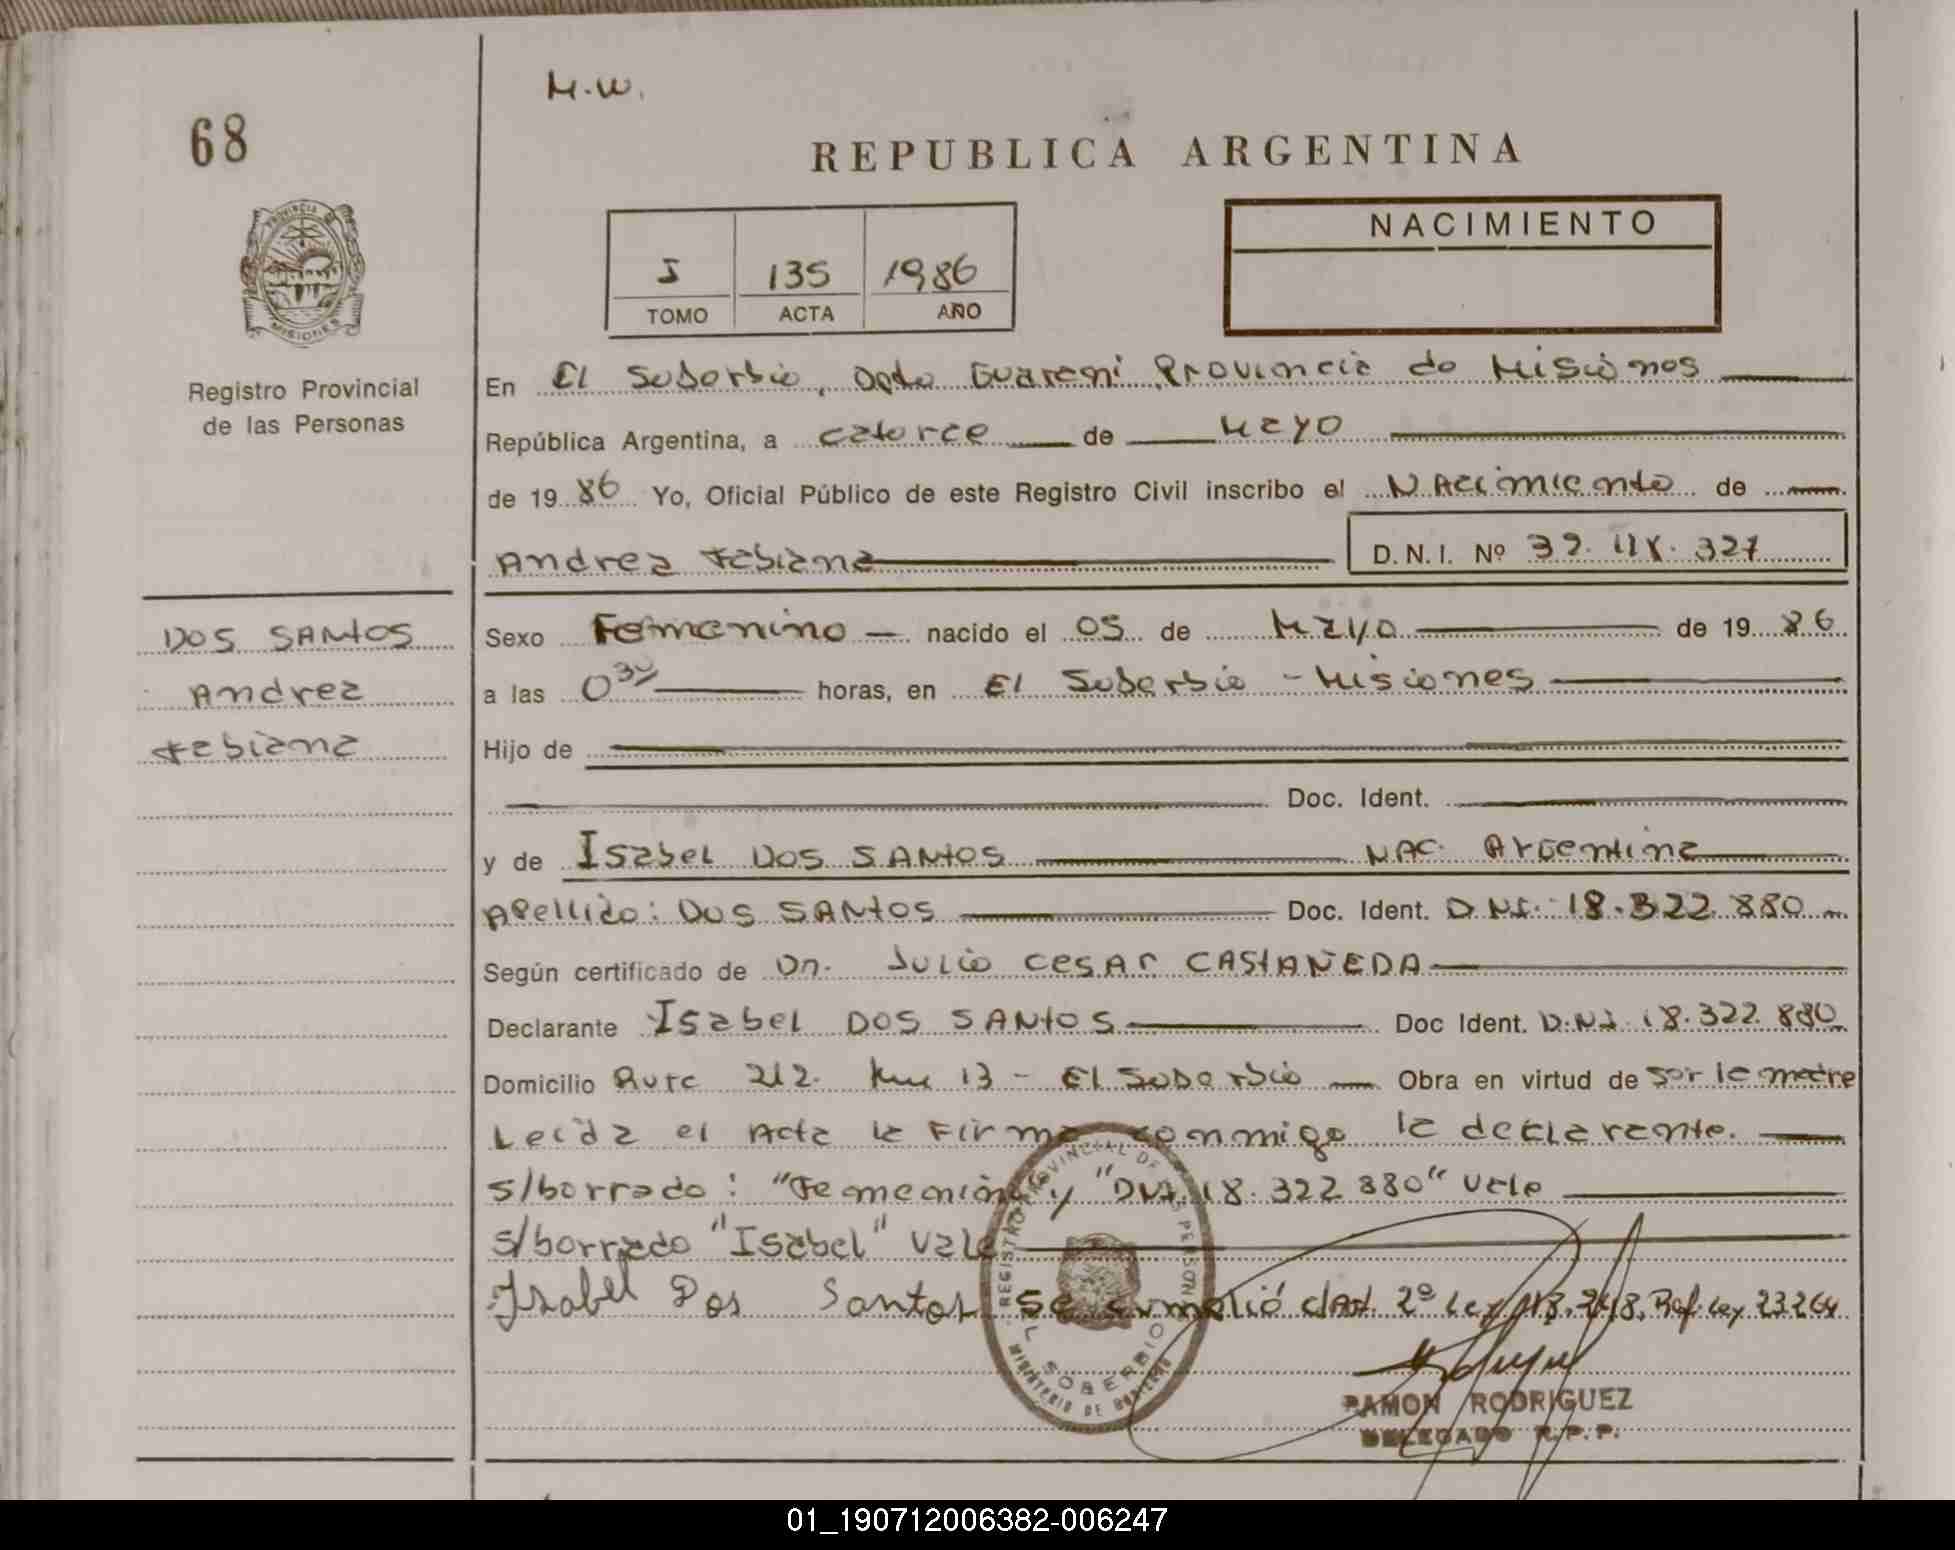 68
M.W.
REPUBLICA ARGENTINA
PROVINCIA DE
MISIONES
Registro Provincial
de las Personas
I 135 1986
TOMO ACTA AÑO
NACIMIENTO
En El Soberbio, Dpto Guarani Provincia de Misiones
República Argentina, a catorce de Mayo
de 1986 Yo, Oficial Público de este Registro Civil inscribo el NAcimiento de
Andrea Fabiana
D.N.I. Nº 32. 118. 327
DOS SANtOS
Andrea
Fabiana
Sexo Femenino nacido el 05 de Mayo de 1986
a las 0 30 horas, en El Soberbio - Misiones
Hijo de
Doc. Ident.
y de Isabel DOS SANtOS NAC. Argentina
Apellido: DOS SANtOS Doc. Ident. D.N.I. 18.322.880
Según certificado de Dn. Julio CesAr CAStAÑEDA
Declarante Isabel DOS SANtOS Doc Ident. D.N.I. 18.322.880
Domicilio Ruta 212. Km 13 - El Soberbio Obra en virtud de Ser la madre
Leida el Acta la Firma conmigo la declarante.
s/borrado: "Femenino" y "DNI. 18.322 880" Vale
s/borrado "Isabel" Vale
Isabel Dos Santos Se cumplió c/Art. 2º Ley 18.248, Ref. Ley 23264
REGISTRO PROVINCIAL DE LAS PERSONAS
EL SOBERBIO
MINISTERIO DE GOBIERNO
RAMON RODRIGUEZ
DELEGADO R.P.P.
01_190712006382-006247